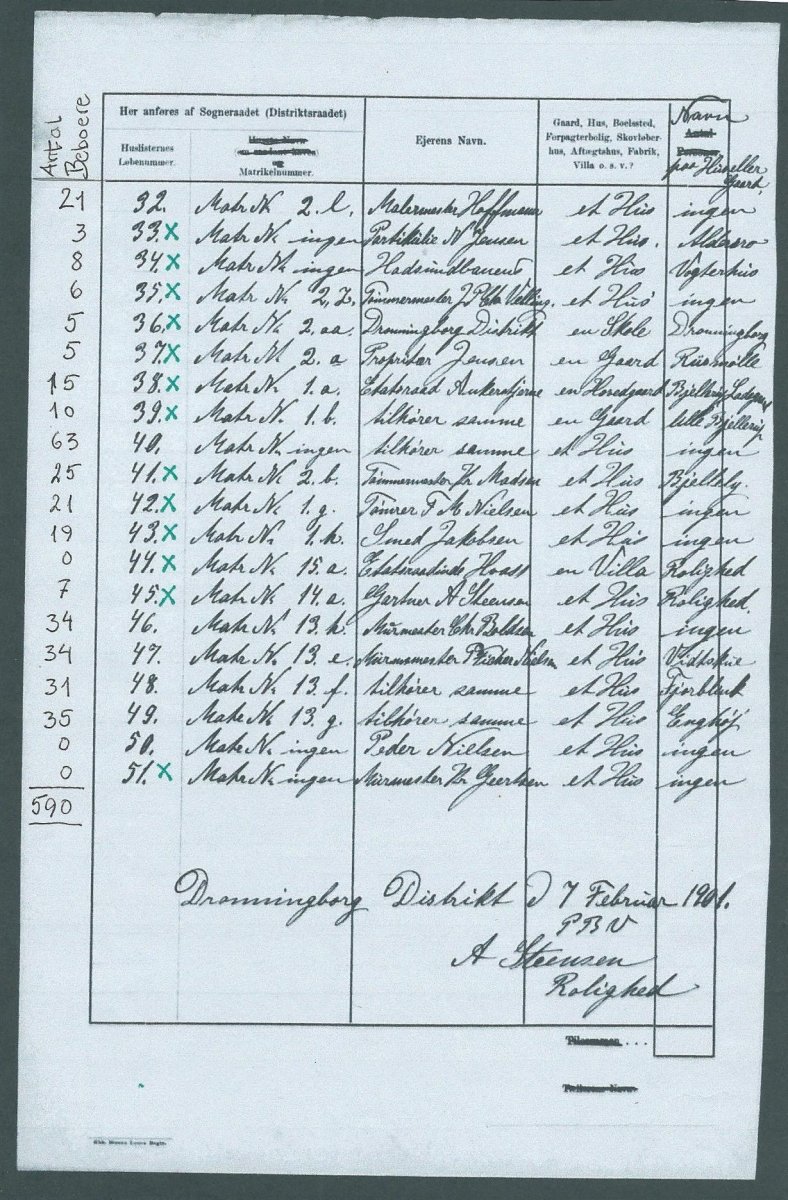 Antal Beboere
Her anføres af Sogneraadet (Distriktsraadet)
Huslisternes Løbenummer.
og Matrikelnummer.
Ejerens Navn.
Gaard, Hus, Boelssted, Forpagterbolig, Skovløberhus, Aftægtshus, Fabrik, Villa o. s. v.?
Navn paa Hus eller Gaard.
21 32. Matr № 2. l. Malermester Hoffmann et Hus ingen
3 33. x Matr № ingen N Jensen et Hus. Aldersro
8 34. x Matr № ingen Hadsundbanens et Hus Vogterhus
6 35. x Matr № 2. z. Tømmermester et Hus ingen
5 36. x Matr № 2. aa. Dronningborg Distrikt en Skole Dronningborg
5 37. x Matr № 2. a Propritær Jensen en Gaard Rusmølle
15 38. x Matr № 1. a. Etatsraad Ankerstjerne en Hovedgaard Bjellerup Ladegaard
10 39. x Matr № 1. b. tilhører samme en Gaard lille Bjellerup
63 40. Matr № ingen tilhører samme et Hus ingen
25 41. x Matr № 2. b. Tømmermester Madsen et Hus Bjellely.
21 42. x Matr № 1. g. Tømrer F M Nielsen et Hus ingen
19 43. x Matr № 1. h. Smed Jakobsen et Hus ingen
0 44. x Matr № 15. a. Etatsraadinde en Villa Rolighed
7 45. x Matr № 14. a. Gartner A Steensen et Hus Rolighed.
34 46. Matr № 13. h. Murmester Chr et Hus ingen
34 47. Matr № 13. e. Murmemester Nielsen et Hus Vidtskue
31 48. Matr № 13. f. tilhører samme et Hus Fjorblink
35 49. Matr № 13. g. tilhører samme et Hus Enghøj
0 50. Matr № ingen Peder Nielsen et Hus ingen
0 51. x Matr № ingen Murmester Geertsen et Hus ingen
590
Dronningborg Distrikt d 7 Februar 1901.
P B V
A Steensen
Rolighed
Tilsammen . . .
Tællerens Navn